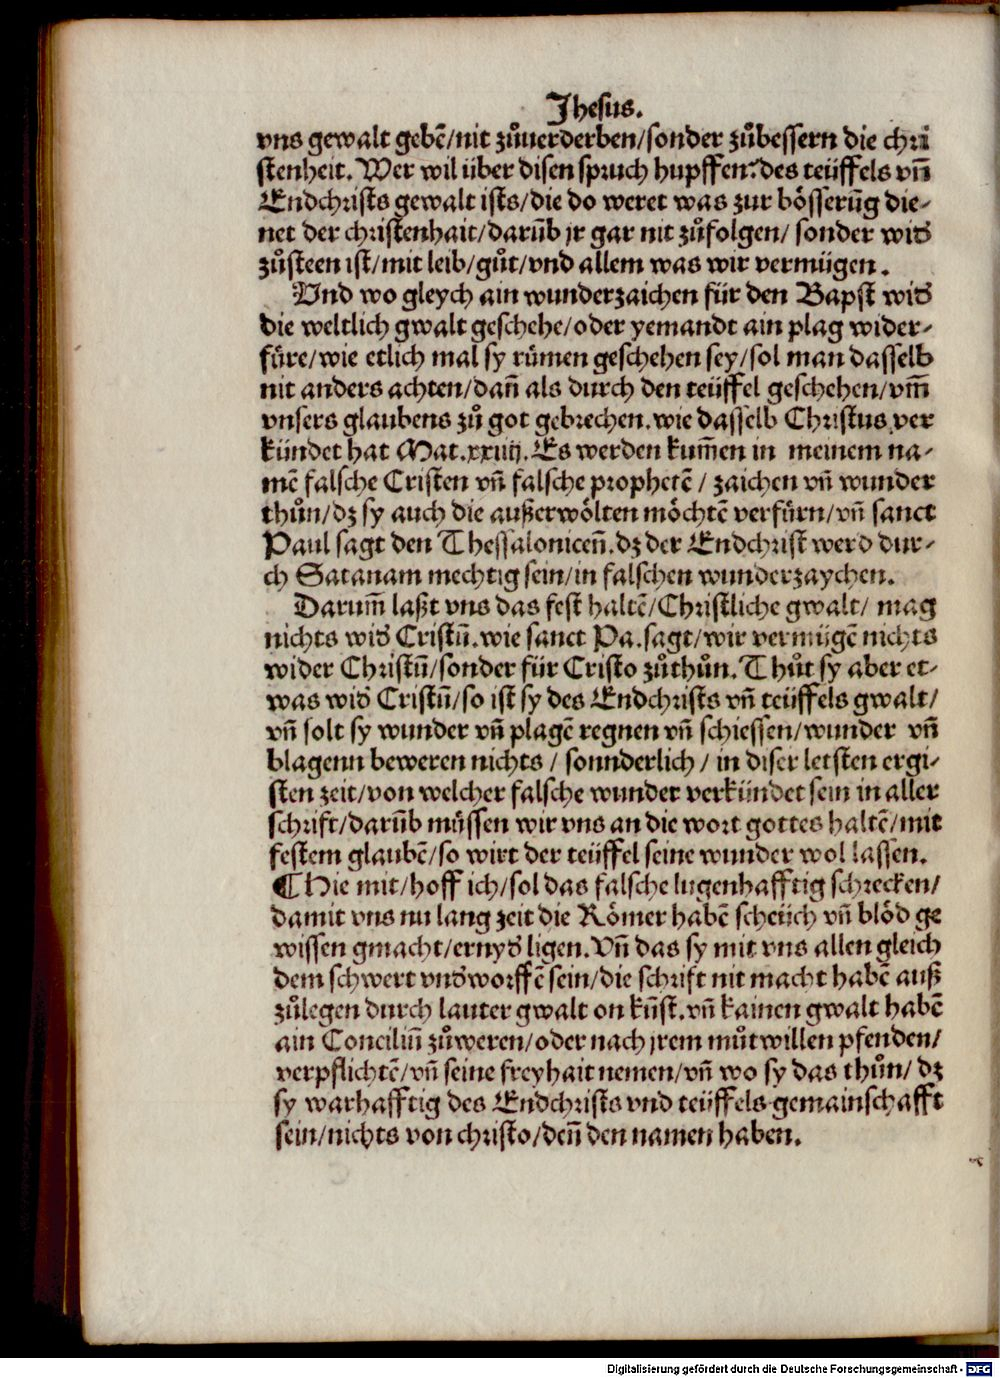 Jhesus.
vns gewalt gebē/nit zůuerderben/sonder zůbessern die chri
stenheit. Wer wil über disen spruch hupffen? des teüffels vn̄
Endchrists gewalt ists/die do weret was zur bösserūg die-
net der christenhait/darūb jr gar nit zůfolgen/ sonder wid
zůsteen ist/mit leib/gůt/vnd allem was wir vermügen.
Vnd wo gleych ain wunderzaichen für den Bapst wid
die weltlich gwalt geschehe/oder yemandt ain plag wider-
füre/wie etlich mal sy rümen geschehen sey/sol man dasselb
nit anders achten/dan̄ als durch den teüffel geschehen/vm̄
vnsers glaubens zů got gebrechen. wie dasselb Christus ver
kündet hat Mat.xxiiij. Es werden kum̄en in meinem na-
mē falsche Cristen vn̄ falsche prophetē / zaichen vn̄ wunder
thůn/dz sy auch die außerwölten möchtē verfürn/vn̄ sanct
Paul sagt den Thessalonicen̄. dz der Endchrist werd dur-
ch Satanam mechtig sein/in falschen wunderzaychen.
Darum̄ laßt vns das fest haltē/Christliche gwalt/ mag
nichts wid Cristū. wie sanct Pa. sagt/wir vermügē nichts
wider Christū/sonder für Cristo zůthůn. Thůt sy aber et-
was wid Cristū/so ist sy des Endchrists vn̄ teüffels gwalt/
vn̄ solt sy wunder vn̄ plagē regnen vn̄ schiessen/wunder vn̄
blagenn beweren nichts / sonnderlich / in diser letsten ergi-
sten zeit/von welcher falsche wunder verkündet sein in aller
schrift/darūb müssen wir vns an die wort gottes haltē/mit
festem glaubē/so wirt der teüffel seine wunder wol lassen.
¶ Hie mit/hoff ich/sol das falsche lugenhafftig schrecken/
damit vns nu lang zeit die Römer habē scheüch vn̄ blöd ge
wissen gmacht/ernyd ligen. Vn̄ das sy mit vns allen gleich
dem schwert vndworffē sein/die schrift nit macht habē auß
zůlegen durch lauter gwalt on kūst. vn̄ kainen gwalt habē
ain Conciliū zůweren/oder nach jrem můtwillen pfenden/
verpflichtē/vn̄ seine freyhait nemen/vn̄ wo sy das thůn/ dz
sy warhafftig des Endchrists vnd teüffels gemainschafft
sein/nichts von christo/den̄ den namen haben.
Digitalisierung gefördert durch die Deutsche Forschungsgemeinschaft - DFG